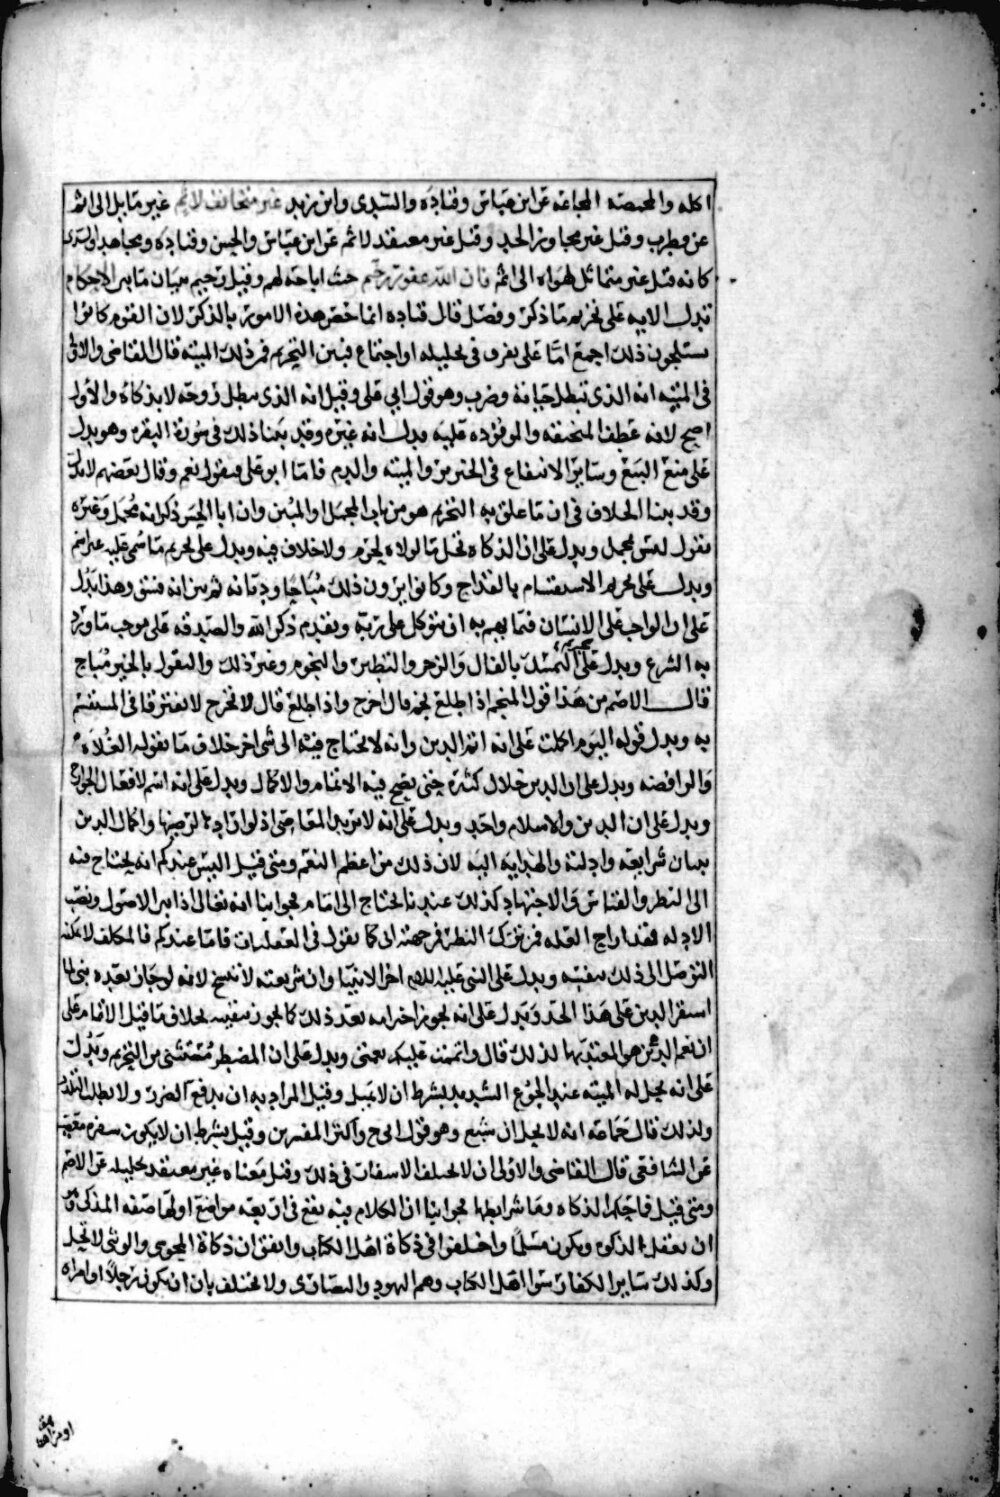 اكله والمخمصة المجاعة عن ابن عباس وقتادة والسدي وابن زيد غير متجانف لاثم غير مايل الى اثم
عن قطرب وقيل غير مجاوز الحد وقيل غير معتقد لاثم عن ابن عباس والحسن وقتادة ومجاهد والسدي
كانه قيل غير متمائل لهواه الى اثم فان الله غفور رحيم حيث اباحه لهم وقيل رحيم ببيان ما بين الاحكام
تدل الاية على تحريم ما ذكر وفصل قال قتادة انما خص هذه الامور بالذكر لان القوم كانوا
يستحلون ذلك اجمع اما على تفرق في تحليله او اجتماع فبين التحريم فمن ذلك الميتة قال القاضي والاولى
في الميتة انه الذي تبطل حياته وضرب وهو قول ابي علي وقيل انه الذي يبطل روحه لا بذكاة والاول
اصح لانه عطف المنخنقة والموقوذة عليه فدل انه غيره وقد بينا ذلك في سورة البقرة وهو يدل
على منع البيع وساير الانتفاع في الخنزير والميتة والدم فاما ابو علي فيقول نعم وقال بعضهم لا يدل
وقد بينا الخلاف في ان ما علق به التحريم هو من باب المجمل او المبين وان ابا الحسن ذكر انه مجمل وغيره
يقول ليس بمجمل ويدل على ان الذكاة تحل ما لولاه لحرم ولا خلاف فيه ويدل على تحريم ما سمى عليه غير الله
ويدل على تحريم الاستقسام بالقداح وكانوا يرون ذلك مباحا ودينا ثم بين انه فسق وهذا يدل
على ان الواجب على الانسان فيما يهم به ان يتوكل على ربه ويقدم ذكر الله والصدقة على موجب ما ورد
به الشرع ويدل على ان التمسك بالفال والزجر والتطير والنجوم وغير ذلك والتفول بالخير مباح
قال الاصم من هذا قول المنجم اذا طلع نجم قال اخرج واذا طلع قال لا تخرج لا يفترقا في المستقسم
به ويدل قوله اليوم اكملت على انه اتم الدين وانه لا يحتاج فيه الى شي اخر خلاف ما يقوله الغلاة
والرافضة ويدل على ان الدين خلال كثيرة حتى يصح فيه الاتمام والاكمال ويدل على انه اسم لافعال الجوارح
ويدل على ان الدين والاسلام واحد ويدل على انه لا يريد المعاصي اذ لو ارادها لرضيها واكمال الدين
بيان شرايعه وادلته والهداية اليه لان ذلك من اعظم النعم ومتى قيل اليس عندكم انه يحتاج فيه
الى النظر والقياس والاجتهاد كذلك عندنا يحتاج الى امام فجوابنا انه تعالى اذا بين الاصول ونصب
الادلة فقد ازاح العلة فمن ترك النظر فمن جهته اتى كما نقول في العقليات فاما عندكم فالمكلف لا يمكنه
التوصل الى ذلك بنفسه ويدل على النبي عليه السلم اخر الانبيا وان شريعته لا تنسخ لانه لو جاز بعده نبي لما
استقر الدين على هذا الحد ويدل على انه لا يجوز اخرامه بعد ذلك كما يجوز نسخه بخلاف ما قيل الاتمام على
ان نعم الدين هو المعتد بها لذلك قال واتممت عليكم نعمتي ويدل على ان المضطر مستثنى من التحريم ويدل
على انه يحل له الميتة عند الجوع الشديد بشرط ان لا يميل وقيل المراد به ان يدفع الضرر ولا يطلب التلذذ
ولذلك قال جماعة انه لا يحل ان يشبع وهو قول ابي ح واكثر المفسرين وقيل بشرط ان لا يكون سفره معصية
عن الشافعي قال القاضي والاولى ان لا يختلف الاسفار في ذلك وقيل معناه غير معتقد تحليله عن الاصم
ومتى قيل فما حكم الذكاة وما شرايطها فجوابنا ان الكلام فيه يقع في اربعة مواضع اولها صفة المذكي فمن
ان يعقل الذكوة ويكون مسلما واختلفوا في ذكاة اهل الكتاب واتفق ان ذكاة المجوسي والوثني لا تحل
وكذلك ساير الكفار سوا اهل الكتاب وهم اليهود والنصارى ولا يختلف بان ان يكون رجلا او امراه